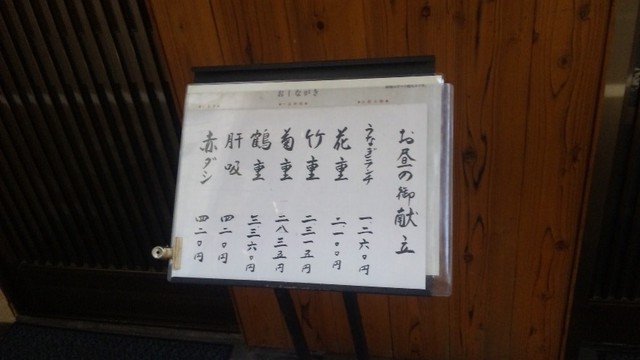 おしながき
お昼の御献立
うなぎランチ 一、二六〇円
花重 二、一〇〇円
竹重 二三一五円
菊重 二八三五円
鶴重 三三六〇円
肝吸 四二〇円
赤ダシ 四二〇円